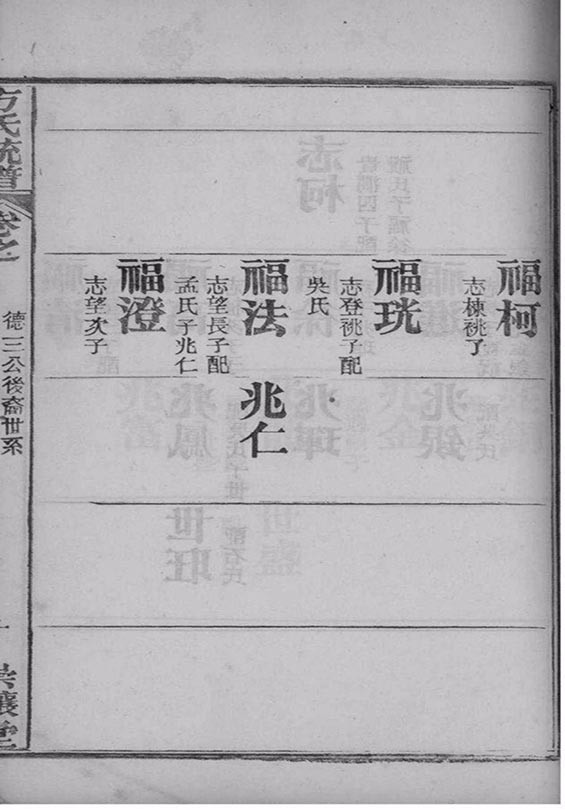 福柯
志棟祧子
福珖
志登祧子配
吳氏
福法
志望長子配
孟氏子兆仁
兆仁
福澄
志望次子
方氏統譜
卷之一
德三公後裔世系